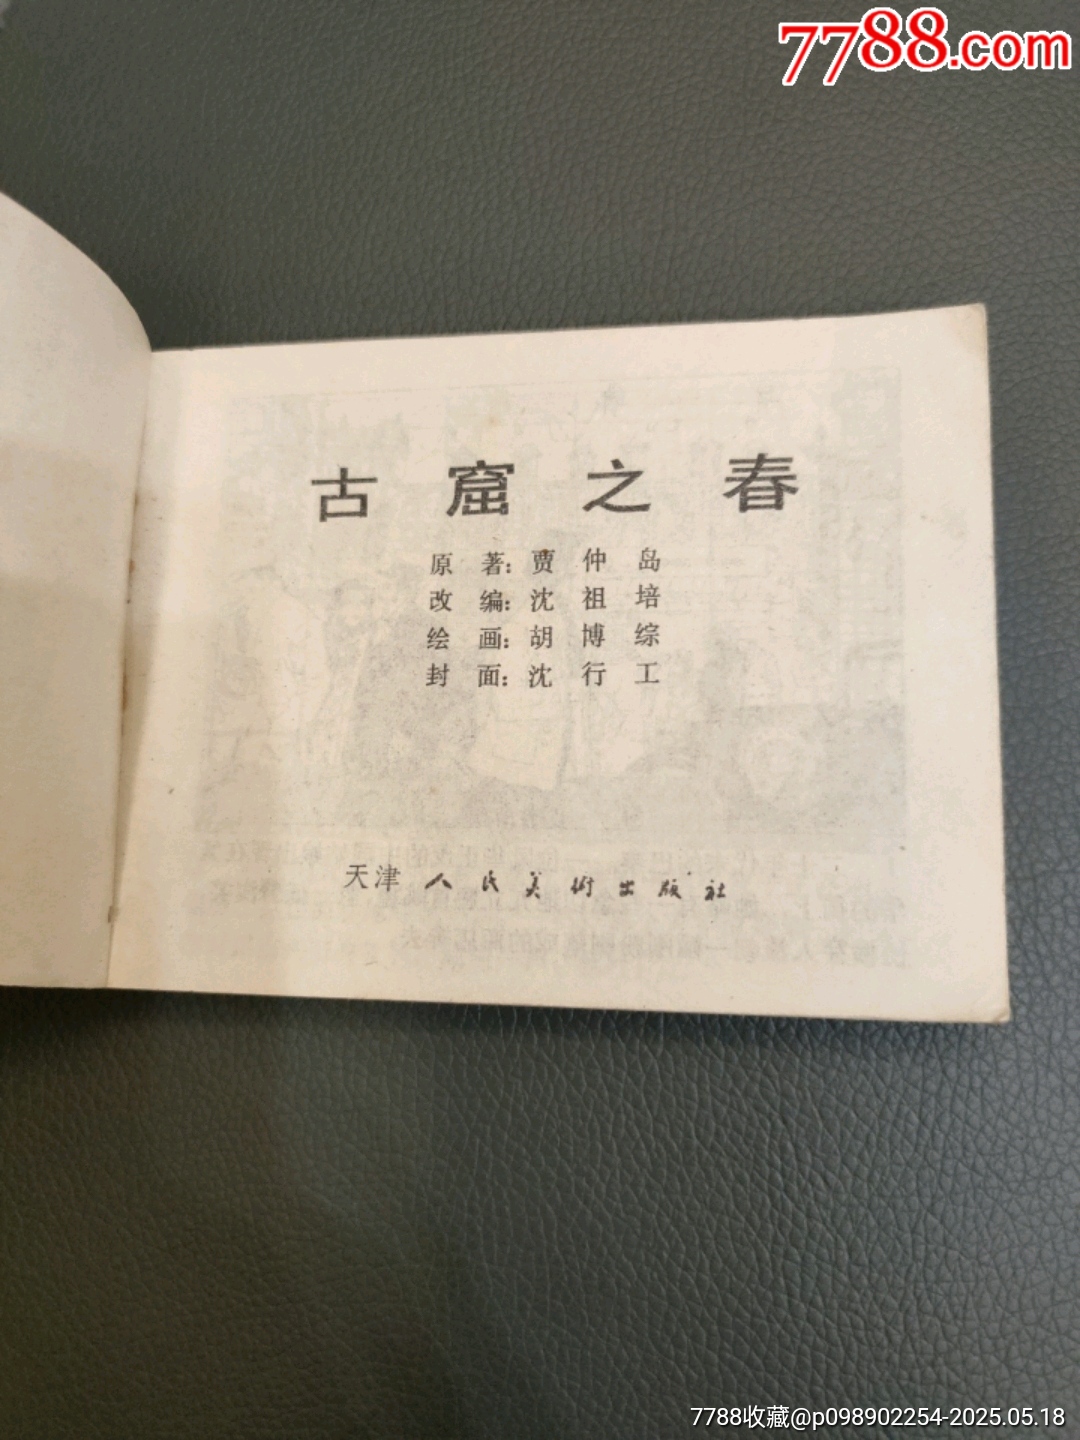 7788.com
古窟之春
原著：贾仲岛
改编：沈祖培
绘画：胡博综
封面：沈行工
天津人民美術出版社
7788收藏@p098902254-2025.05.18